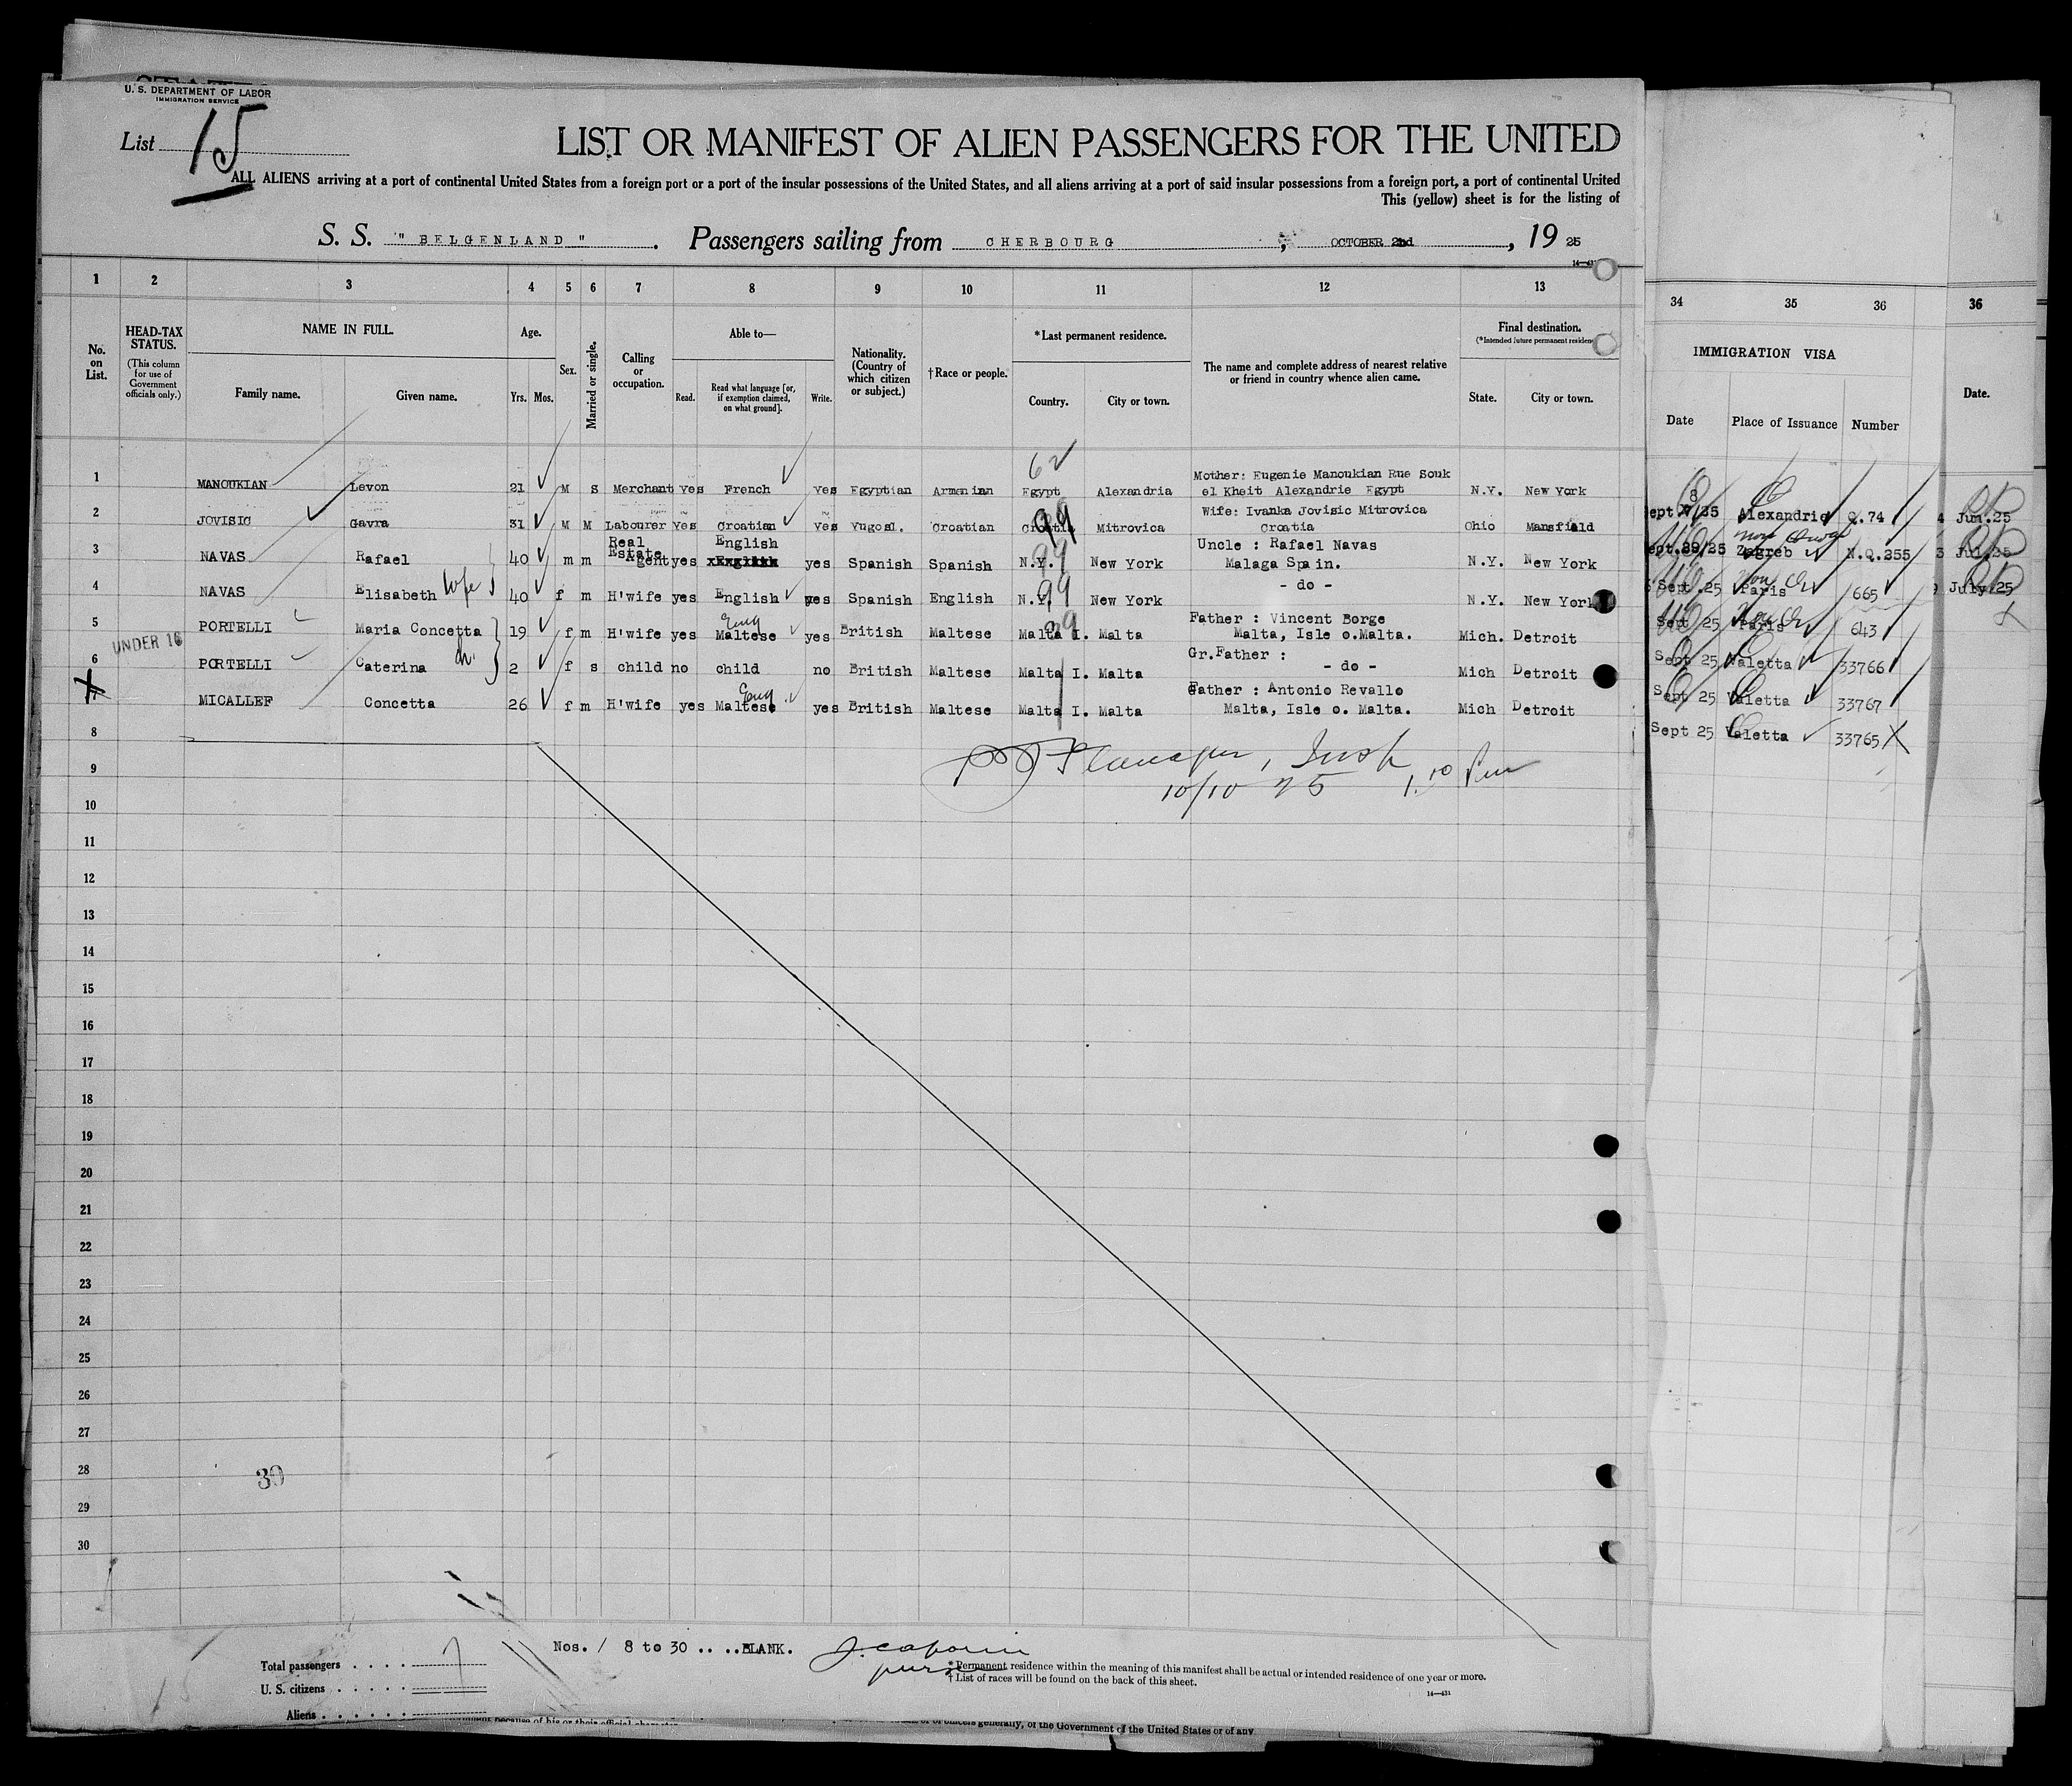 U. S. DEPARTMENT OF LABOR
IMMIGRATION SERVICE
List 15
LIST OR MANIFEST OF ALIEN PASSENGERS FOR THE UNITED
ALL ALIENS arriving at a port of continental United States from a foreign port or a port of the insular possessions of the United States, and all aliens arriving at a port of said insular possessions from a foreign port, a port of continental United
This (yellow) sheet is for the listing of
S. S. "BELGENLAND". Passengers sailing from CHERBOURG, OCTOBER 2nd, 19 25
1 2 3 4 5 6 7 8 9 10 11 12 13 34 35 36 36
No. on List.
HEAD-TAX STATUS.
(This column for use of Government officials only.)
NAME IN FULL.
Family name. Given name.
Age.
Yrs. Mos.
Sex.
Married or single.
Calling or occupation.
Able to—
Read. Read what language [or, if exemption claimed, on what ground]. Write.
Nationality. (Country of which citizen or subject.)
†Race or people.
*Last permanent residence.
Country. City or town.
The name and complete address of nearest relative or friend in country whence alien came.
Final destination.
(*Intended future permanent residence
State. City or town.
IMMIGRATION VISA
Date Place of Issuance Number
Date.
1 MANOUKIAN Levon 21 M S Merchant Yes French Yes Egyptian Armenian Egypt Alexandria Mother: Eugenie Manoukian Rue Souk el Kheit Alexandrie Egypt N.Y. New York
2 JOVISIC Gavra 31 M M Labourer Yes Croatian Yes Yugosl. Croatian Croatia Mitrovica Wife: Ivanka Jovisic Mitrovica Croatia Ohio Mansfield
3 NAVAS Rafael 40 m m Real Estate Agent yes English yes Spanish Spanish N.Y. New York Uncle : Rafael Navas Malaga Spain. N.Y. New York
4 NAVAS Elisabeth Wife 40 f m H'wife yes English yes Spanish English N.Y. New York - do - N.Y. New York
5 PORTELLI Maria Concetta 19 f m H'wife yes Maltese Eng yes British Maltese Malta I. Malta Father : Vincent Borge Malta, Isle o.Malta. Mich. Detroit
UNDER 16
6 PORTELLI Caterina ch. 2 f s child no child no British Maltese Malta I. Malta Gr.Father : - do - Mich Detroit
7 MICALLEF Concetta 26 f m H'wife yes Maltese Eng yes British Maltese Malta I. Malta Father : Antonio Revallo Malta, Isle o. Malta. Mich Detroit
Alexandrie Q.74
Zagreb N.Q.255
Sept.25 Paris 665
Sept 25 Paris 643
Sept 25 Valetta 33766
Sept 25 Valetta 33767
Sept 25 Valetta 33765
4 Jun.25
3 Jul.25
9 July.25
8
10/10 25 1.10 Pm
9
10
11
12
13
14
15
16
17
18
19
20
21
22
23
24
25
26
27
28
30
29
30
Nos. / 8 to 30 .. ..BLANK.
Total passengers . . . . 7
U. S. citizens . . . . .
Aliens . . . . . .
* Permanent residence within the meaning of this manifest shall be actual or intended residence of one year or more.
† List of races will be found on the back of this sheet.
14—431
of officers generally, of the Government of the United States or of any